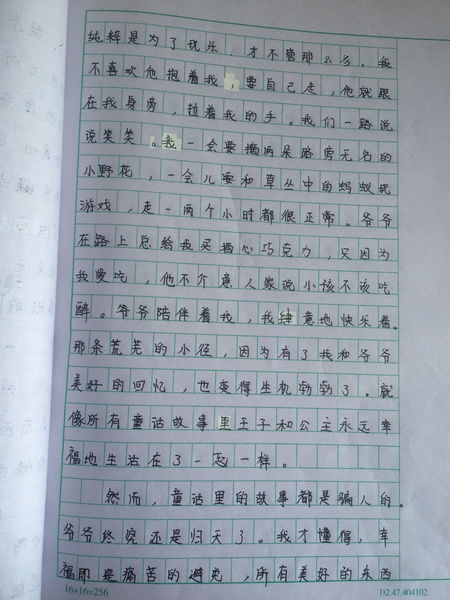 纯粹是为了玩乐，才不管那么多，我
不喜欢他抱着我，要自己走，他就跟
在我身旁，拉着我的手。我们一路说
说笑笑。我一会要摘两朵路旁无名的
小野花，一会儿要和草丛中的蚂蚁玩
游戏，走一两个小时都很正常。爷爷
在路上总给我买酒心巧克力，只因为
我爱吃，他不介意人家说小孩不该吃
醉。爷爷陪伴着我，我肆意地快乐着。
那条荒芜的小径，因为有了我和爷爷
美好的回忆，也变得生机勃勃了。就
像所有童话故事里王子和公主永远幸
福地生活在了一起一样。
然而，童话里的故事都是骗人的。
爷爷终究还是归天了。我才懂得，幸
福即是痛苦的避免，所有美好的东西
16×16=256
D2.47.404102